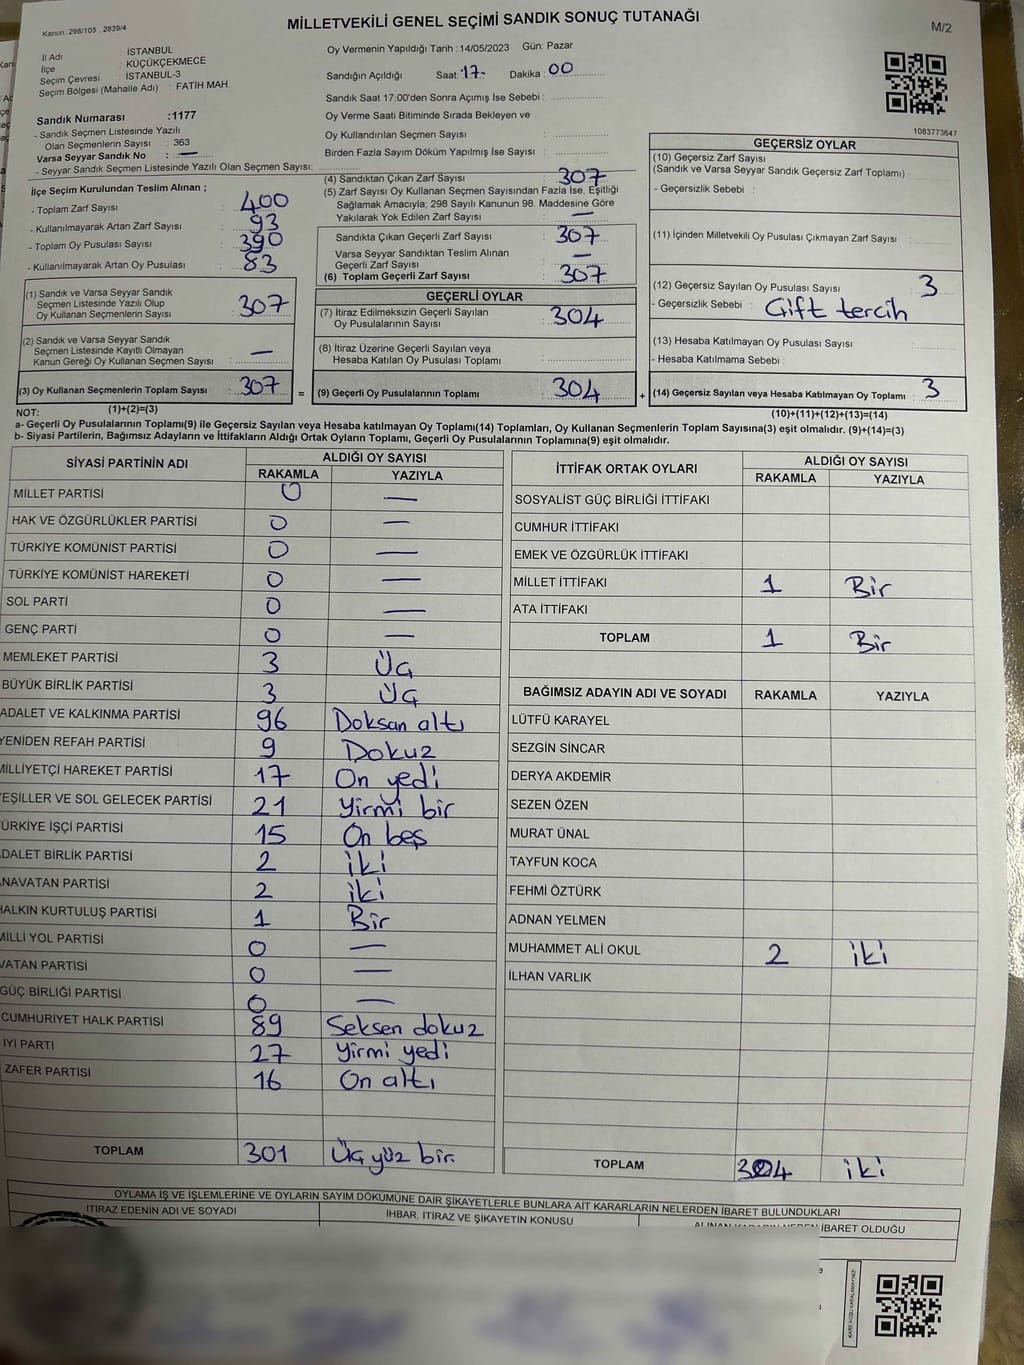 Kanun: 298/105 , 2839/4
MİLLETVEKİLİ GENEL SEÇİMİ SANDIK SONUÇ TUTANAĞI
M/2
İl Adı : İSTANBUL
İlçe : KÜÇÜKÇEKMECE
Seçim Çevresi : İSTANBUL-3
Seçim Bölgesi (Mahalle Adı) : FATİH MAH.
Oy Vermenin Yapıldığı Tarih : 14/05/2023 Gün: Pazar
Sandığın Açıldığı Saat: 17 Dakika : 00
Sandık Saat 17:00'den Sonra Açımış İse Sebebi :
Oy Verme Saati Bitiminde Sırada Bekleyen ve
Oy Kullandırılan Seçmen Sayısı :
Birden Fazla Sayım Döküm Yapılmış İse Sayısı :
1083773647
Sandık Numarası : 1177
- Sandık Seçmen Listesinde Yazılı
Olan Seçmenlerin Sayısı : 363
Varsa Seyyar Sandık No : —
- Seyyar Sandık Seçmen Listesinde Yazılı Olan Seçmen Sayısı:
İlçe Seçim Kurulundan Teslim Alınan ;
- Toplam Zarf Sayısı : 400
- Kullanılmayarak Artan Zarf Sayısı : 93
- Toplam Oy Pusulası Sayısı : 390
- Kullanılmayarak Artan Oy Pusulası : 83
(1) Sandık ve Varsa Seyyar Sandık
Seçmen Listesinde Yazılı Olup
Oy Kullanan Seçmenlerin Sayısı : 307
(2) Sandık ve Varsa Seyyar Sandık
Seçmen Listesinde Kayıtlı Olmayan
Kanun Gereği Oy Kullanan Seçmen Sayısı : —
(3) Oy Kullanan Seçmenlerin Toplam Sayısı : 307
(1)+(2)=(3)
(4) Sandıktan Çıkan Zarf Sayısı : 307
(5) Zarf Sayısı Oy Kullanan Seçmen Sayısından Fazla İse, Eşitliği
Sağlamak Amacıyla, 298 Sayılı Kanunun 98. Maddesine Göre
Yakılarak Yok Edilen Zarf Sayısı : —
Sandıkta Çıkan Geçerli Zarf Sayısı : 307
Varsa Seyyar Sandıktan Teslim Alınan
Geçerli Zarf Sayısı : —
(6) Toplam Geçerli Zarf Sayısı : 307
GEÇERLİ OYLAR
(7) İtiraz Edilmeksizin Geçerli Sayılan
Oy Pusulalarının Sayısı : 304
(8) İtiraz Üzerine Geçerli Sayılan veya
Hesaba Katılan Oy Pusulası Toplamı :
= (9) Geçerli Oy Pusulalarının Toplamı : 304
GEÇERSİZ OYLAR
(10) Geçersiz Zarf Sayısı
(Sandık ve Varsa Seyyar Sandık Geçersiz Zarf Toplamı) :
- Geçersizlik Sebebi :
(11) İçinden Milletvekili Oy Pusulası Çıkmayan Zarf Sayısı :
(12) Geçersiz Sayılan Oy Pusulası Sayısı : 3
- Geçersizlik Sebebi : Çift tercih
(13) Hesaba Katılmayan Oy Pusulası Sayısı :
- Hesaba Katılmama Sebebi :
+ (14) Geçersiz Sayılan veya Hesaba Katılmayan Oy Toplamı : 3
(10)+(11)+(12)+(13)=(14)
NOT:
a- Geçerli Oy Pusulalarının Toplamı(9) ile Geçersiz Sayılan veya Hesaba katılmayan Oy Toplamı(14) Toplamları, Oy Kullanan Seçmenlerin Toplam Sayısına(3) eşit olmalıdır. (9)+(14)=(3)
b- Siyasi Partilerin, Bağımsız Adayların ve İttifakların Aldığı Ortak Oyların Toplamı, Geçerli Oy Pusulalarının Toplamına(9) eşit olmalıdır.
SİYASİ PARTİNİN ADI ALDIĞI OY SAYISI
RAKAMLA YAZIYLA
MİLLET PARTİSİ 0 —
HAK VE ÖZGÜRLÜKLER PARTİSİ 0 —
TÜRKİYE KOMÜNİST PARTİSİ 0 —
TÜRKİYE KOMÜNİST HAREKETİ 0 —
SOL PARTİ 0 —
GENÇ PARTİ 0 —
MEMLEKET PARTİSİ 3 Üç
BÜYÜK BİRLİK PARTİSİ 3 Üç
ADALET VE KALKINMA PARTİSİ 96 Doksan altı
YENİDEN REFAH PARTİSİ 9 Dokuz
MİLLİYETÇİ HAREKET PARTİSİ 17 On yedi
YEŞİLLER VE SOL GELECEK PARTİSİ 21 Yirmi bir
ÜRKİYE İŞÇİ PARTİSİ 15 On beş
DALET BİRLİK PARTİSİ 2 iki
NAVATAN PARTİSİ 2 iki
HALKIN KURTULUŞ PARTİSİ 1 Bir
MİLLİ YOL PARTİSİ 0 —
VATAN PARTİSİ 0 —
GÜÇ BİRLİĞİ PARTİSİ 0 —
CUMHURİYET HALK PARTİSİ 89 Seksen dokuz
İYİ PARTİ 27 Yirmi yedi
ZAFER PARTİSİ 16 On altı
TOPLAM 301 Üç yüz bir
İTTİFAK ORTAK OYLARI ALDIĞI OY SAYISI
RAKAMLA YAZIYLA
SOSYALİST GÜÇ BİRLİĞİ İTTİFAKI
CUMHUR İTTİFAKI
EMEK VE ÖZGÜRLÜK İTTİFAKI
MİLLET İTTİFAKI 1 Bir
ATA İTTİFAKI
TOPLAM 1 Bir
BAĞIMSIZ ADAYIN ADI VE SOYADI RAKAMLA YAZIYLA
LÜTFÜ KARAYEL
SEZGİN SİNCAR
DERYA AKDEMİR
SEZEN ÖZEN
MURAT ÜNAL
TAYFUN KOCA
FEHMİ ÖZTÜRK
ADNAN YELMEN
MUHAMMET ALİ OKUL 2 iki
İLHAN VARLIK
TOPLAM 304 iki
OYLAMA İŞ VE İŞLEMLERİNE VE OYLARIN SAYIM DÖKÜMÜNE DAİR ŞİKAYETLERLE BUNLARA AİT KARARLARIN NELERDEN İBARET BULUNDUKLARI
İTİRAZ EDENİN ADI VE SOYADI İHBAR, İTİRAZ VE ŞİKAYETİN KONUSU ALINAN KARARIN NEDEN İBARET OLDUĞU